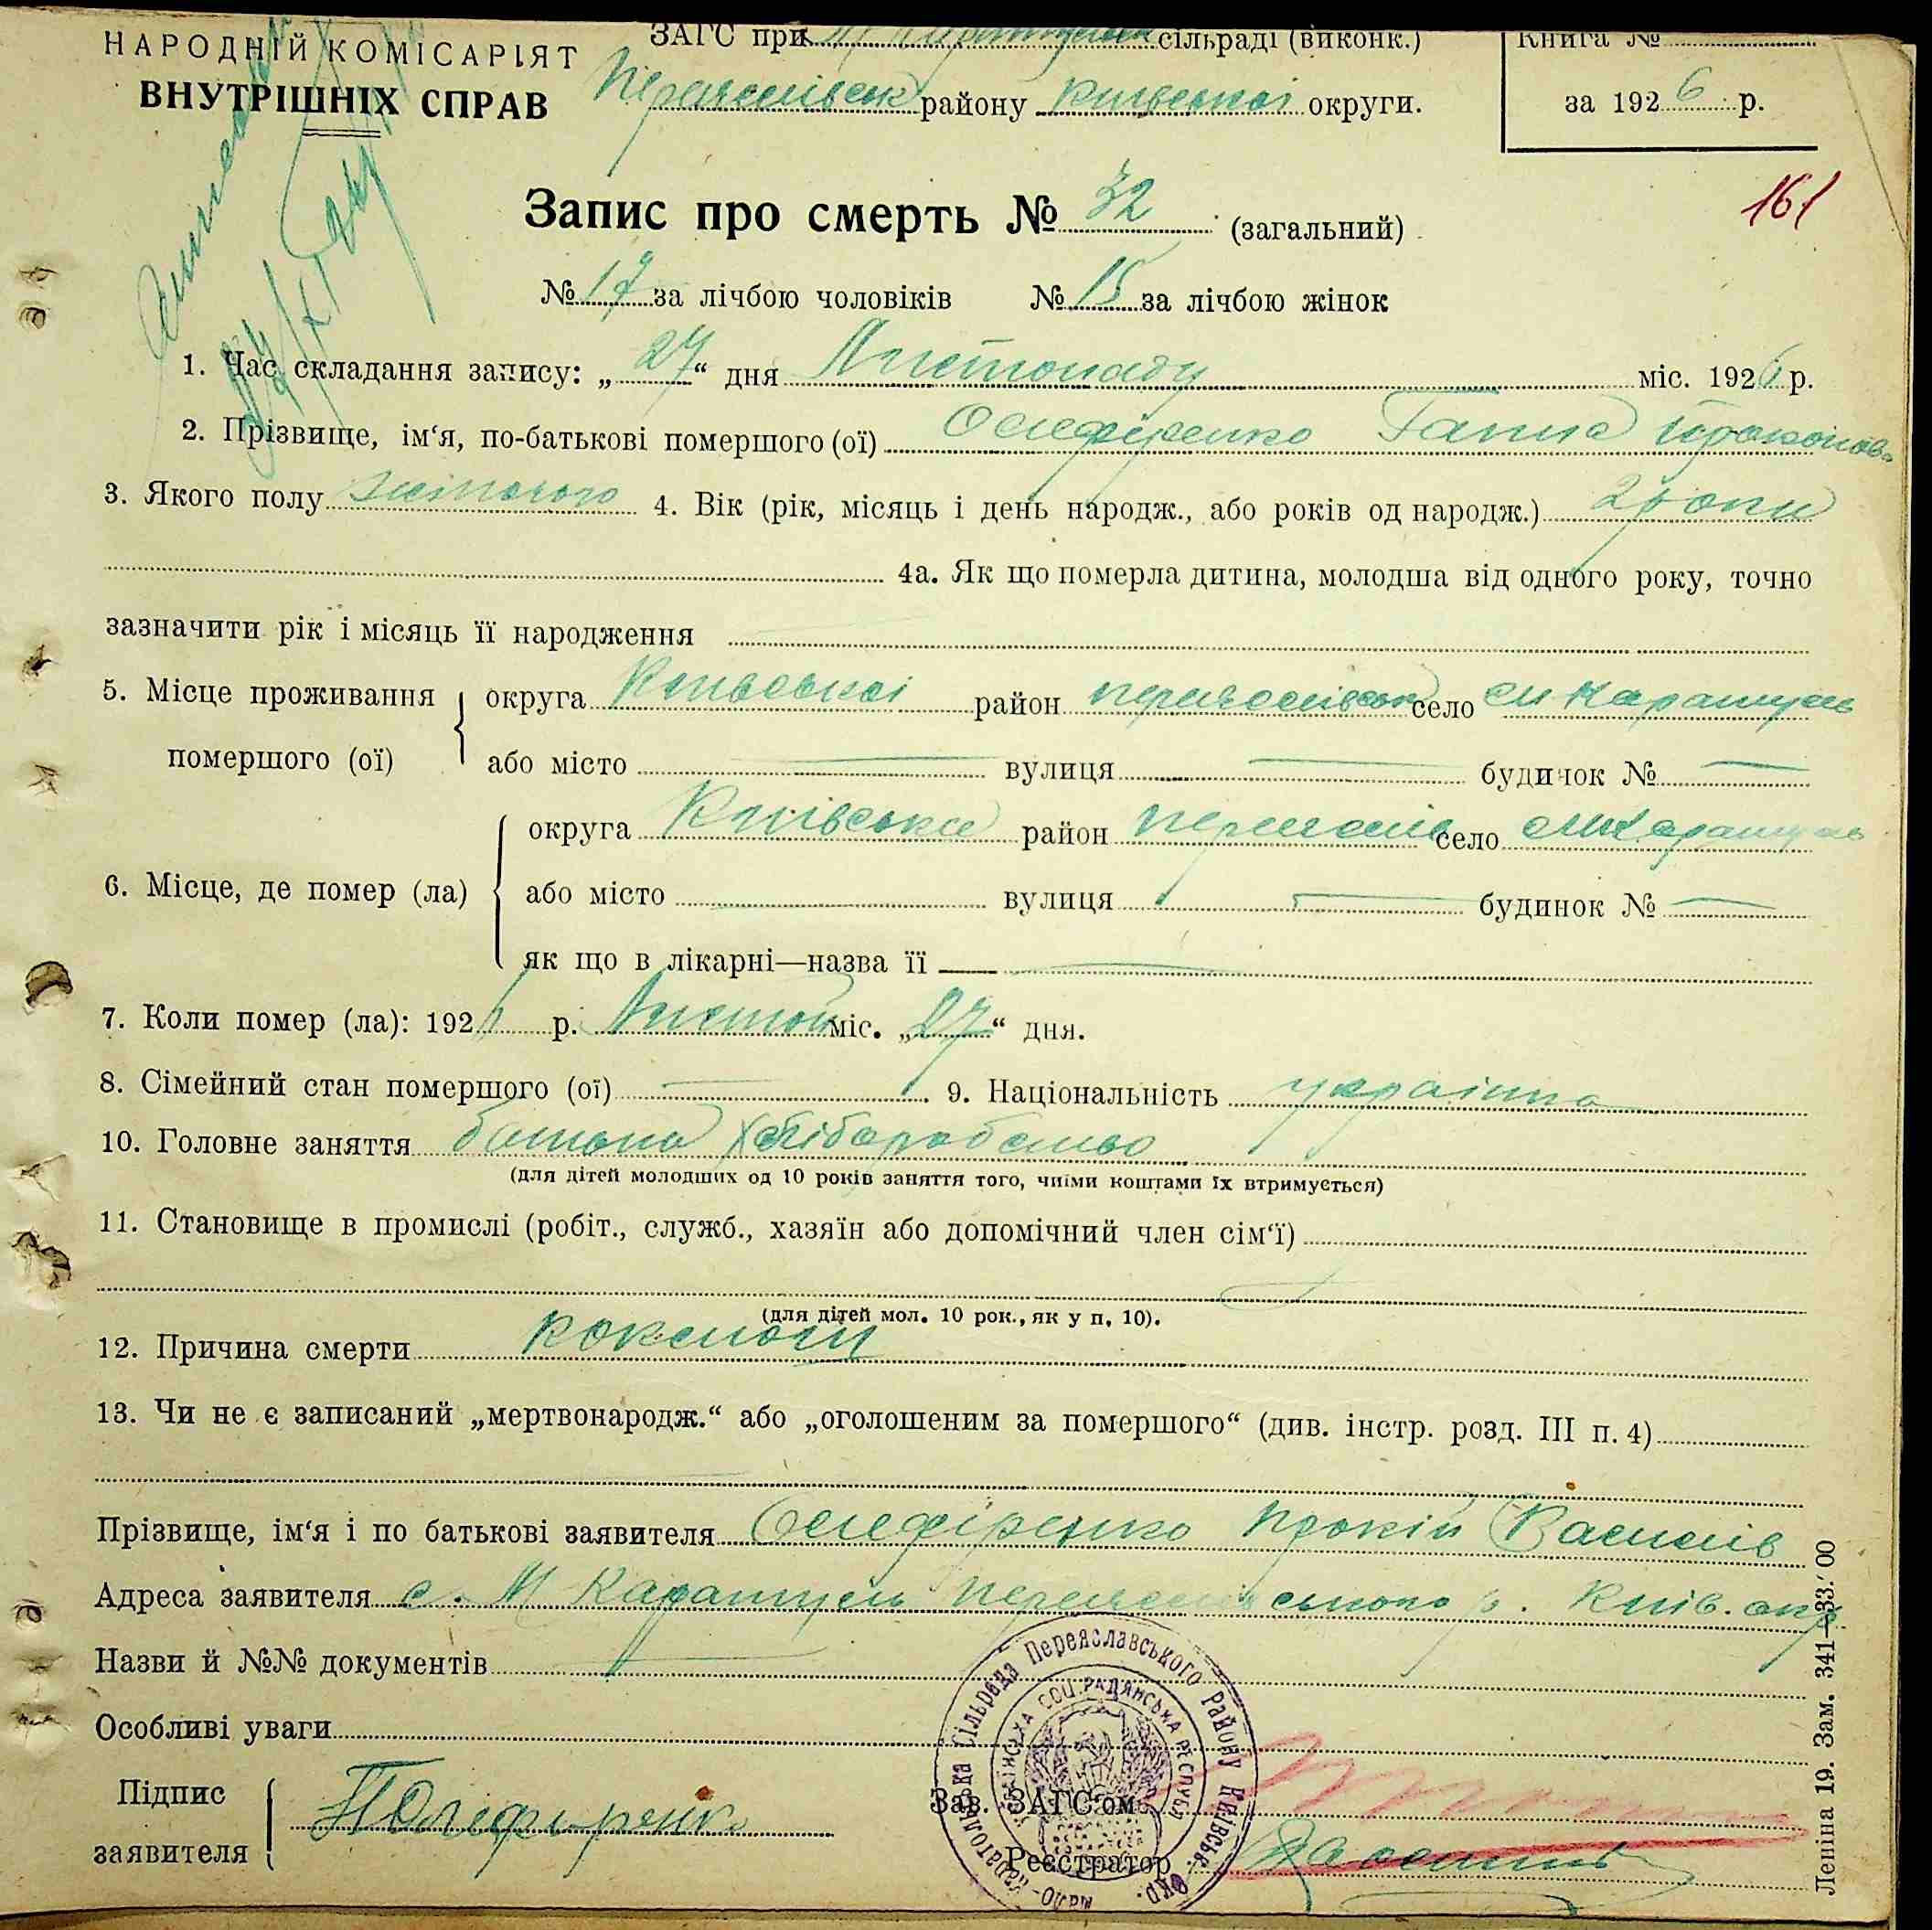 НАРОДНІЙ КОМІСАРІЯТ
ВНУТРІШНІХ СПРАВ
ЗАГС при М Каратульск сільраді (виконк.)
району Київської округи.
Книга №
за 1926 р.
161
Запис про смерть № 32 (загальний)
№ 17 за лічбою чоловіків № 15 за лічбою жінок
1. Час складання запису: „27“ дня Листопаду міс. 1926 р.
2. Прізвище, ім‘я, по-батькові помершого (ої) Олефіренко Ганна Прокопов.
3. Якого полу жіночого 4. Вік (рік, місяць і день народж., або років од народж.) 2 роки
4а. Як що померла дитина, молодша від одного року, точно
зазначити рік і місяць її народження
5. Місце проживання помершого (ої) округа Київської район село М Каратуль
або місто — вулиця — будинок № —
6. Місце, де помер (ла) округа Київська район село М Каратуль
або місто вулиця — будинок № —
як що в лікарні—назва її —
7. Коли помер (ла): 1926 р. Листоп міс. „27“ дня.
8. Сімейний стан помершого (ої) — 9. Національність українка
10. Головне заняття батька Хліборобство
(для дітей молодших од 10 років заняття того, чиїми коштами їх втримується)
11. Становище в промислі (робіт., служб., хазяїн або допомічний член сім‘ї)
(для дітей мол. 10 рок., як у п. 10).
12. Причина смерти коклюш
13. Чи не є записаний „мертвонародж.“ або „оголошеним за помершого“ (див. інстр. розд. III п. 4)
Прізвище, ім‘я і по батькові заявителя Олефіренко Прокіп Василів
Адреса заявителя с. М Каратуль р. Київ. окр
Назви й №№ документів —
Особливі уваги
Підпис заявителя П Олефиренк
Зав. ЗАГС‘ом
Реєстратор
Мало-Каратульська Сільрада Переяславського Району Київськ. Окр.
УКРАЇНСЬКА СОЦ. РАДЯНСЬКА РЕСПУБЛ
Леніна 19. Зам. 341—33.